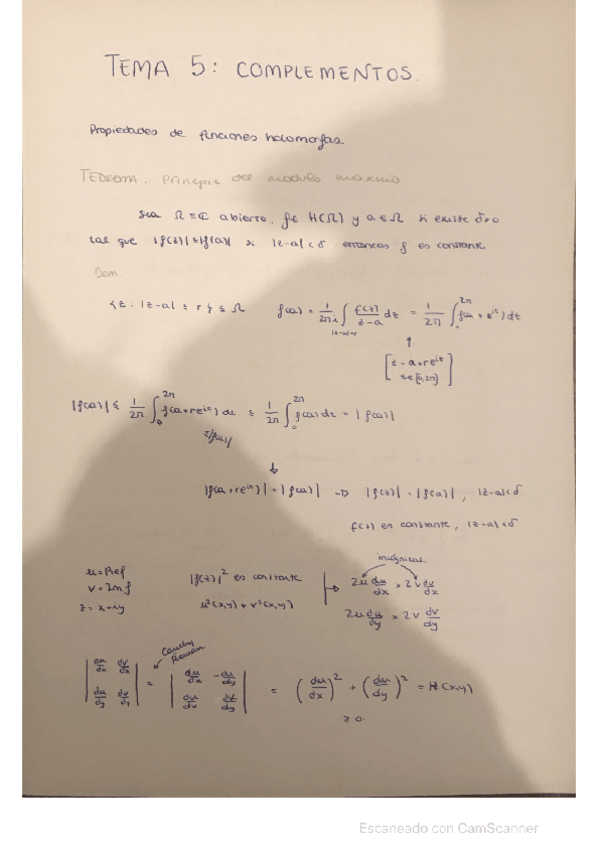 TEMA 5: COMPLEMENTOS.
Propiedades de funciones holomorfas.
TEOREMA. Principio del modulo maximo
Sea Ω=ℂ abierto, f∈ H(Ω) y a∈Ω si existe δ>0
tal que |f(z)|≤|f(a)| si |z-a|<δ entonces f es constante
Dem
{z: |z-a| ≤ r} ⊆ Ω f(a) = 1/2πi ∫_{|z-a|=r} f(z)/(z-a) dz = 1/2π ∫_0^{2π} f(a+re^{it}) dt
[z=a+re^{it}
t∈[0,2π]]
|f(a)| ≤ 1/2π ∫_0^{2π} f(a+re^{it}) dt ≤ 1/2π ∫_0^{2π} f(a) dt = |f(a)|
≤|f(a)|
↓
|f(a+re^{it})| = |f(a)| ⇒ |f(z)| = |f(a)|, |z-a|<δ
f(z) es constante, |z-a|<δ
u=Ref
v=Imf
z=x+iy
|f(z)|² es constante
u²(x,y)+v²(x,y)
2u du/dx + 2v dv/dx
2u du/dy + 2v dv/dy
Cauchy
Riemann
|du/dx dv/dx; du/dy dv/dy| = |du/dx -du/dy; du/dx dv/dy| = (du/dx)² + (du/dy)² = H(x,y)
≥0
Escaneado con CamScanner